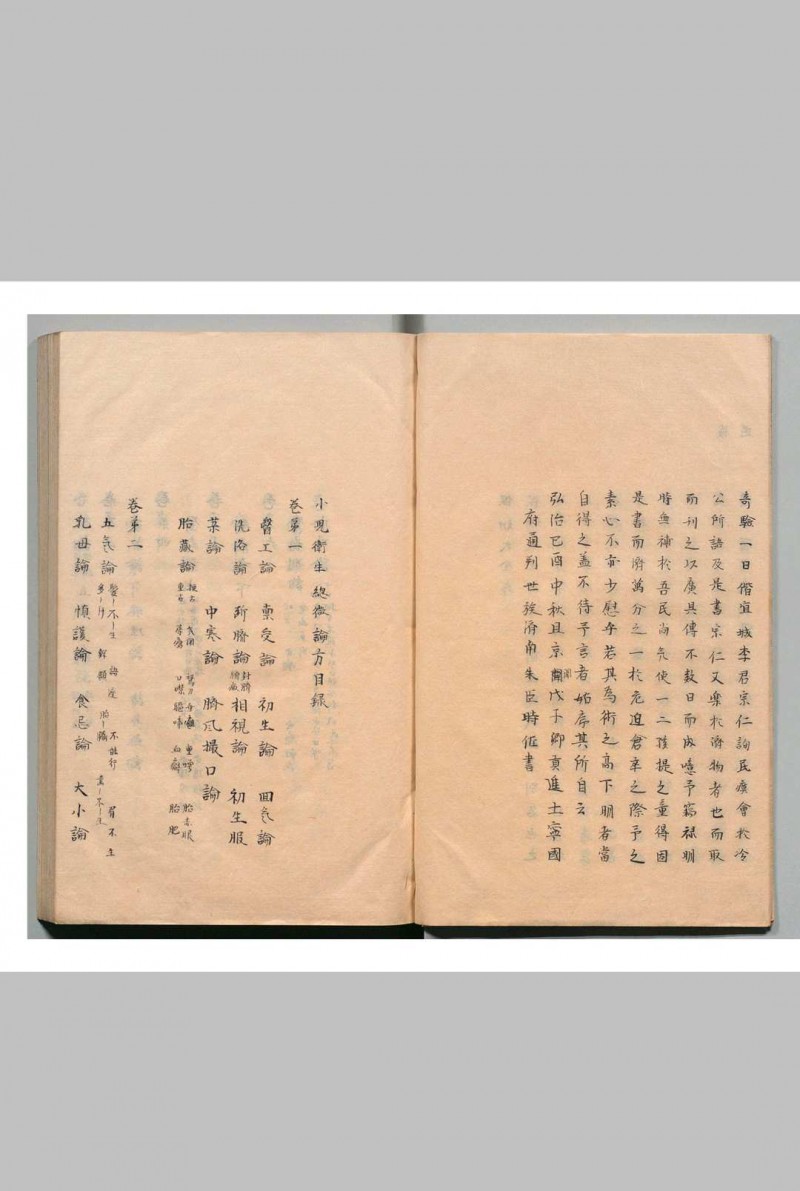 奇驗一日偕宜城李君宗仁論民瘼會於冷
公所語及是書宗仁又樂於濟物者也而取
而刊之以廣其傳不數日而成噫予竊祿明
時無補於吾民尚先使一二孩提之童得因
是書而濟萬分之一於危迫倉卒之際予之
素心不亦少慰乎若其為術之高下明者當
自得之蓋不待予言者始序其所自云
弘治己酉中秋且京闈戊子鄉貢進士寧國
府通判世經濟南朱臣時任書
小児衛生總微論方目録
卷第一
醫工論 稟受論 初生論 回氣論
洗浴論 斷臍論 相視論 初生服
藥論 中寒論 臍風撮口論
胎蔵論
胎肥
卷第二
五氣論
乳母論 慎護論 食忌論 大小論